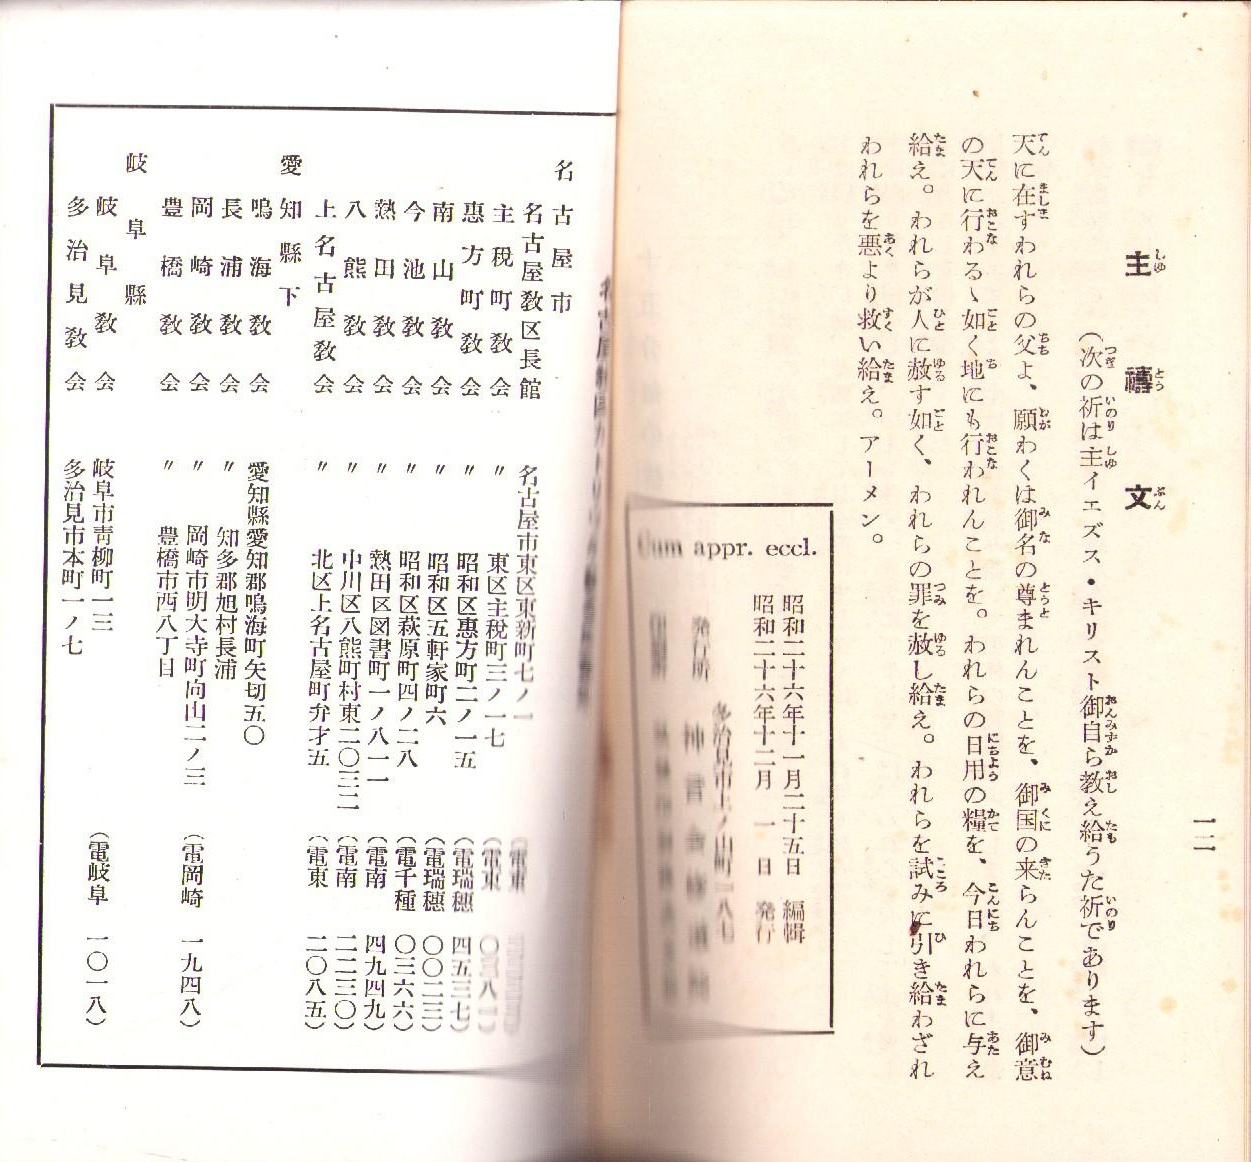 一二
主禱文
（次の祈は主イエズス・キリスト御自ら教え給うた祈であります）
天に在すわれらの父よ、願わくは御名の尊まれんことを、御国の来らんことを、御意
の天に行わるゝ如く地にも行われんことを。われらの日用の糧を、今日われらに与え
給え。われらが人に赦す如く、われらの罪を赦し給え。われらを試みに引き給わざれ
われらを悪より救い給え。アーメン。
Cum appr. eccl.
昭和二十六年十一月二十五日 編輯
昭和二十六年十二月一日 発行
多治見市上ノ山町一八七
発行所 神言会修道院
名古屋市
名古屋敎区長館 名古屋市東区東新町七ノ一 （電東
主税町敎会 〃 東区主税町三ノ一七 （電東
恵方町敎会 〃 昭和区恵方町二ノ一五 （電瑞穗 四五三七）
南山敎会 〃 昭和区五軒家町六 （電瑞穗 〇〇二三）
今池敎会 〃 昭和区萩原町四ノ二八 （電千種 〇三六六）
熱田敎会 〃 熱田区図書町一ノ八一一 （電南 四九四九）
八熊敎会 〃 中川区八熊町村東二〇三二 （電南 二二三〇）
上名古屋敎会 〃 北区上名古屋町弁才五 （電東 二〇八五）
愛知縣下
鳴海敎会 愛知縣愛知郡鳴海町矢切五〇
長浦敎会 〃 知多郡旭村長浦
岡崎敎会 〃 岡崎市明大寺町向山二ノ三 （電岡崎 一九四八）
豊橋敎会 〃 豊橋市西八丁目
岐阜縣
岐阜敎会 岐阜市青柳町一三 （電岐阜 一〇一八）
多治見敎会 多治見市本町一ノ七